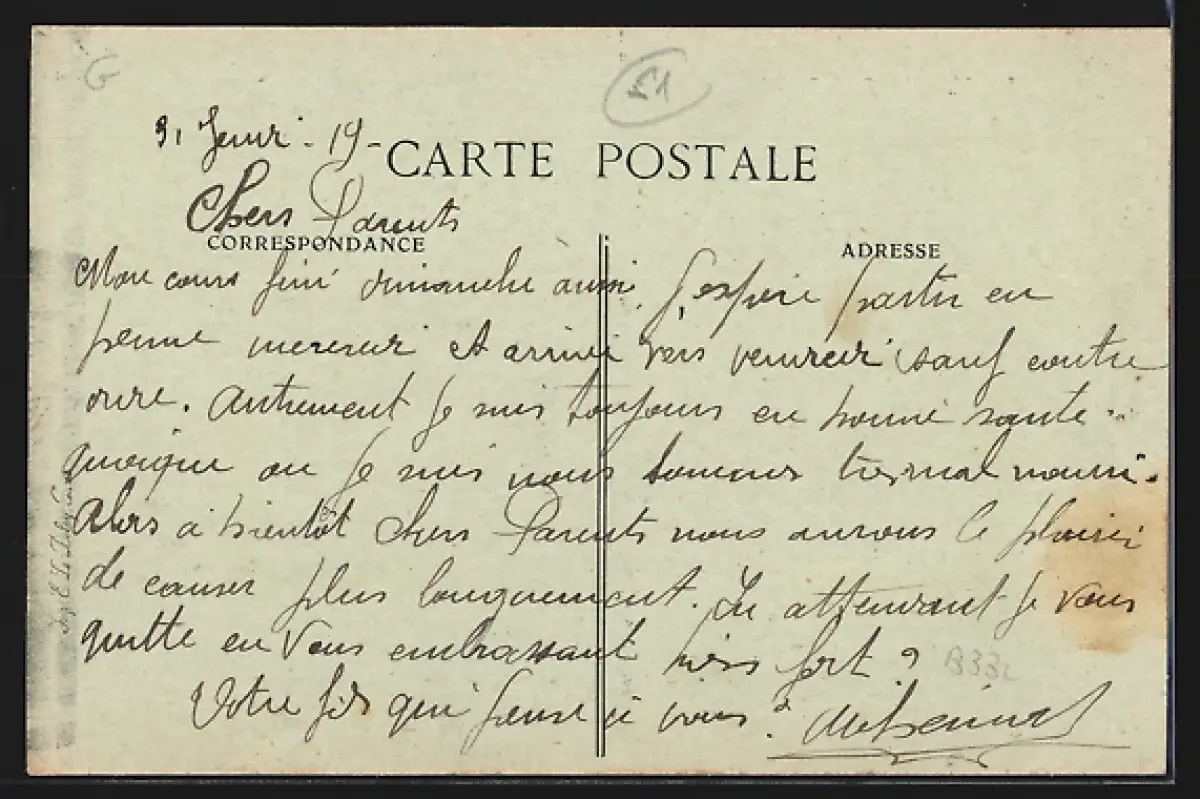 G
51
31 Janvr. 19-
CARTE POSTALE
Chers Parents
CORRESPONDANCE
ADRESSE
Mon cours fini dimanche aussi j'espère partir en
perme mercredi et arrivé vers vendredi sauf contre
ordre. Autrement je suis toujours en bonne santé
quoique ou je suis nous sommes très mal nourri.
Alors à bientôt Chers Parents nous aurons le plaisir
de causer plus longuement. En attendant je vous
quitte en vous embrassant bien fort
B33
Votre fils qui pense à vous.